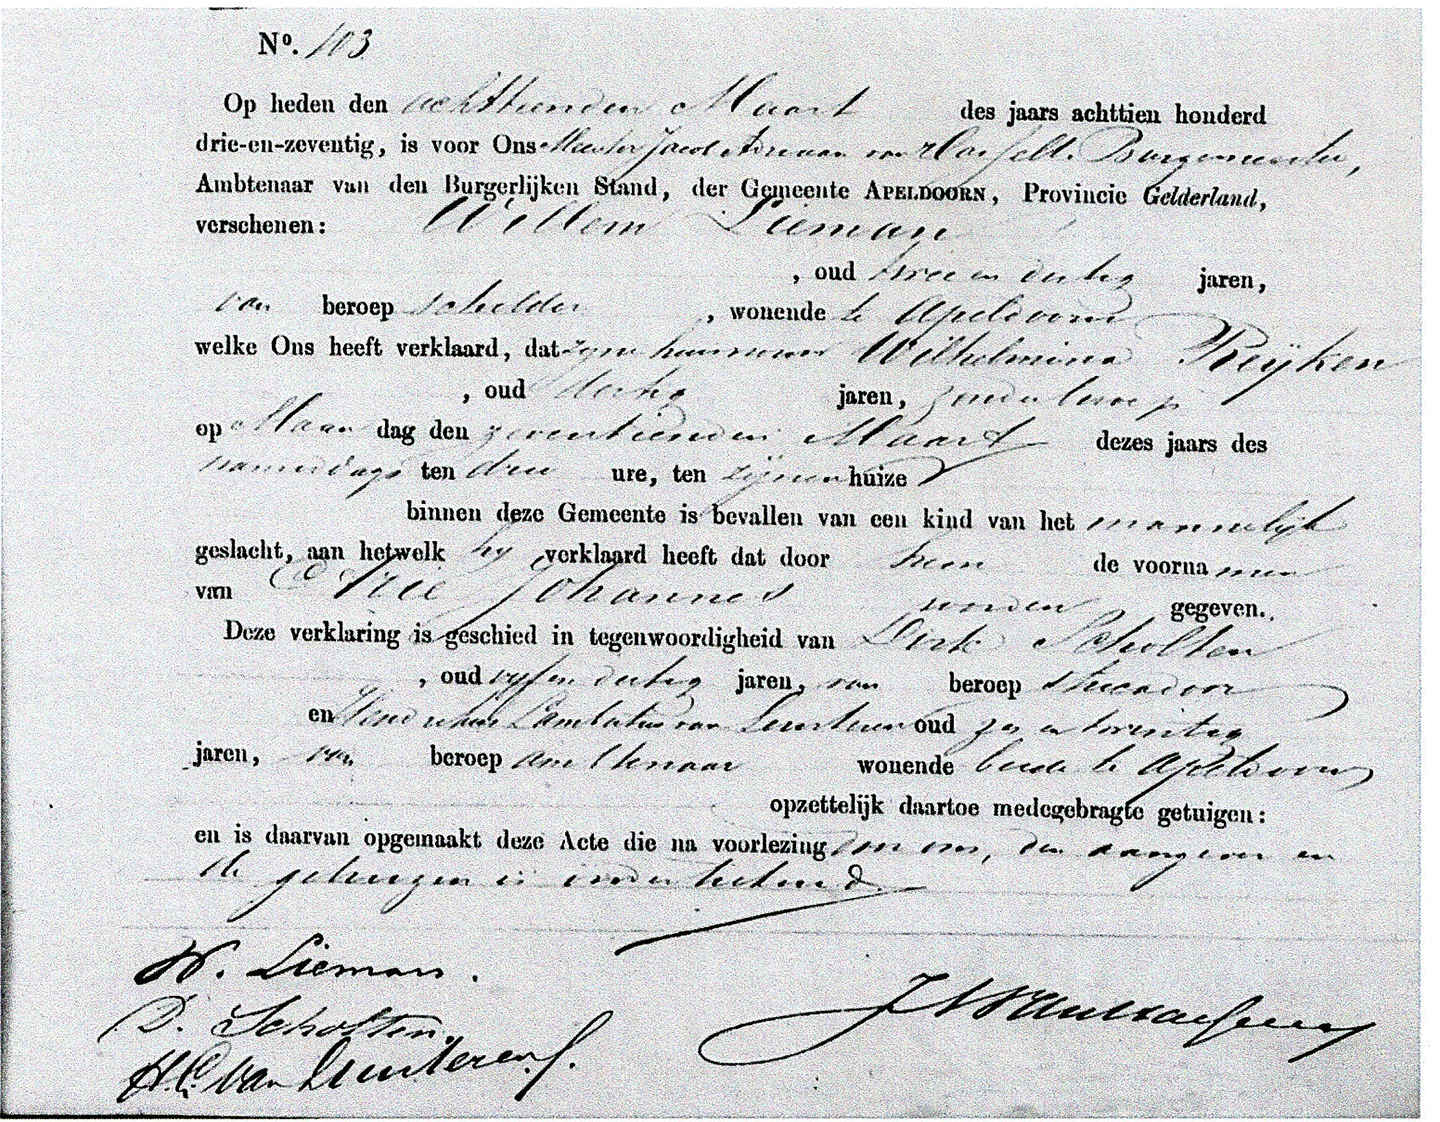 No. 103
Op heden den achttienden Maart des jaars achttien honderd
drie-en-zeventig, is voor Ons Meester Jacob Adriaan van Hasselt. Burgemeester,
Ambtenaar van den Burgerlijken Stand, der Gemeente APELDOORN, Provincie Gelderland,
verschenen: Willem Lieman
, oud twee en dertig jaren,
van beroep schilder , wonende te Apeldoorn
welke Ons heeft verklaard, dat zyne huisvrouw Wilhelmina Reijken
, oud dertig jaren, zonder beroep
op Maan dag den zeventienden Maart dezes jaars des
namiddags ten drie ure, ten zijnen huize
binnen deze Gemeente is bevallen van een kind van het mannelijk
geslacht, aan hetwelk hy verklaard heeft dat door hem de voorna men
van Johannes worden gegeven.
Deze verklaring is geschied in tegenwoordigheid van Dirk Scholten
, oud vyf en dertig jaren, van beroep
en Lambertus van Lunteren oud zes en twintig
jaren, van beroep ambtenaar wonende beide te Apeldoorn
opzettelijk daartoe medegebragte getuigen:
en is daarvan opgemaakt deze Acte die na voorlezing door ons, den aangever en
de getuigen is onderteekend
W. Lieman.
D. Scholten.
H.L. van Lunteren.